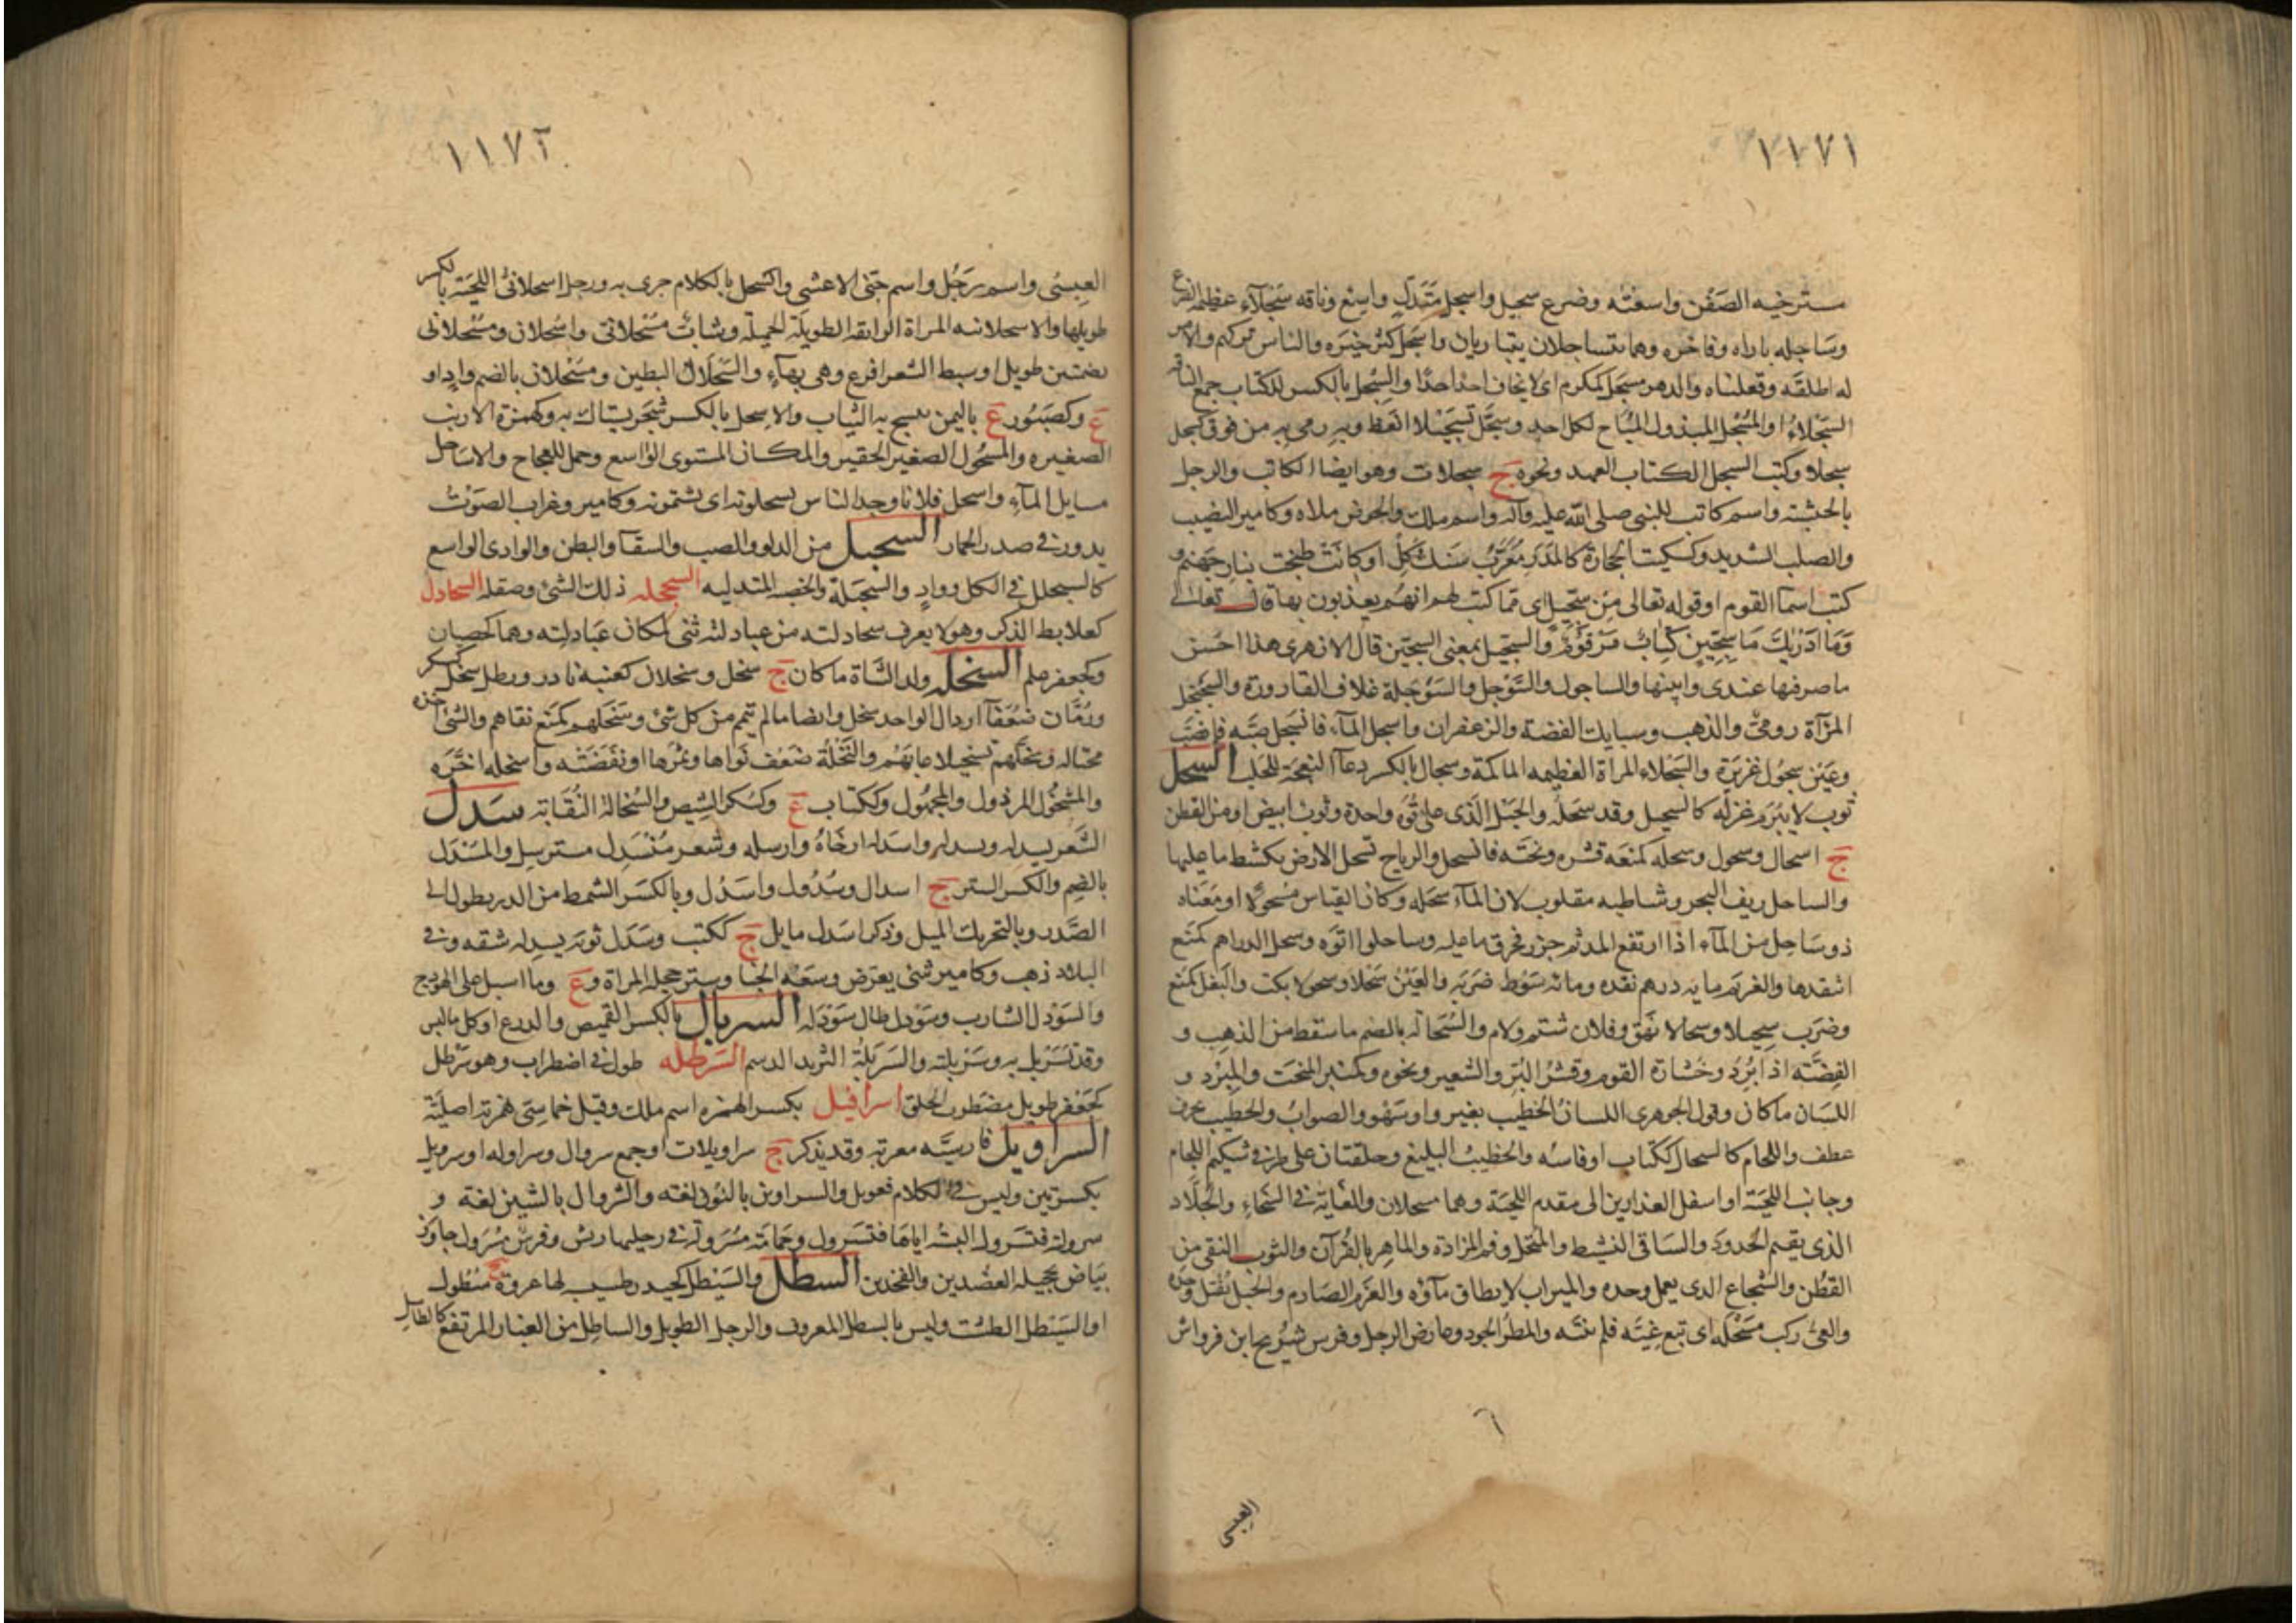 ١١٧١
مسترخيه الصَفَن واسعَتُه وضرع سجيل واسجل مُتَدَلٍّ واسِع وناقه سَجْلآءُ عظيمه الضرع
وسَاجله باراه وفاخره وهما يتساجلان يتباريان واسجَل كثر خيرَه والناس تركهم والامر
له اطلقه وفعلناه والدهر مسجَل كمكرم اى لا يخاف احد احدًا والسِّجل بالكسر للكتاب جمع الناقه
السَجْلاءُ او المُسْجَل المبذول المباح لكل احد وسجَّل تسجيلا انعظ وبه رمى به من فوق كسجل
سجلا وكتب السجل الكتاب العهد ونحوه ج سجلات وهو ايضا الكاتب والرجل
بالحبشه واسم كاتب للنبى صلى الله عليه وآله واسم ملك والحوض ملاه وكامير النصيب
والصلب الشديد وكسكيت الحجارة كالمدَر مُعَرَّبُ سَنك كِل او كانَتْ طبخت بنار جهنم و
كتب اسمآ القوم او قوله تعالى مِن سِجّيل اى مما كتب لهم انهم يعذبون بها قال تعالى
وَمَا ادَرْيكَ مَا سِجّين كتابٌ مَرْقُومٌ والسجّيل بمعنى السجّين قال الازهرى هذا احسَن
ما مر فيها عندى وابينها والساجول والسَّوْجل والسَوْجلة غلاف القارورة والسَجَنْجل
المرآة رومىٌّ والذهب وسبايك الفضة والزعفران واسجل المآء فانسجل صبَّه فانصَبَّ
وعَين سجُول غزيرة والسَجْلاء المراة العظيمه الماكمة وسجال بالكسر دعآ النعجة للحَلب السحل
ثوب لا يُبرَم غزله كالسحيل وقد سحَله والحَبل الذى على قُوَّة واحدة وثوب ابيض او من القطن
ج اسحال وسحول وسحله كمنعَه قشره ونحته فانسحل والرياح تسحل الارض تكشط ما عليها
والساحل ريف البحر وشاطيه مقلوب لان المآء سَحَله وكان القياس مَسْحُولًا او مَعَناه
ذو سَاحل من المآء اذا ارتفع المد ثم جزر فجرف ما عليه وساحلوا اتوه وسحل الدراهم كمنَع
انتقدها والغريم مايه درهم نقده ومائه سَوْط ضرَبَه والعَيْن سَحْلا وسحولا بكت والبَغل كمنَع
وضرَب سحيلا وسحالا نَهَقَ وفلان شتم ولام والسُّحَاله بالضم ما سقط من الذهب و
الفضَّة اذا بُرِدَ وخُشارة القوم وقشرُ البُرّ والشعير ونحوه وكمنبر المِنحَت والمِبْرَد و
اللسَان ما كان وقول الجوهرى اللسانُ الخطيب بغير واو سَهْو والصوابُ والخطيب بحرف
عطف واللجام كالسحال ككتاب او فاسُه والخطيبُ البليغ وحلقتان على طرفى شكيم اللجام
وجانب اللحيَة او اسفل العذارين الى مقدم اللحيَة وهما مسحلان والغاية فى السخاءِ والجَلّاد
الذى يقيم الحُدودَ والساقى النشيط والمنخل وفم المزادة والماهِر بالقُرآن والثوب النقى من
القطن والشجاع الذى يعمل وحده والميزاب لا يطاق مآؤه والعزم الصارم والحَبل يُفتل وحده
والغىّ ركب مِسْحَله اى تبع غيَّه فلم ينته والمطرُ الجود وعارض الرجل وفرس شُرَيح ابن قرواش
العبسى
١١٧٢
العبسِىّ واسم رَجُل واسم جنّى الاعشى وانسحل بالكلام جرى به ورجل اسحلانىُّ اللحيَة بالكسر
طويلها والاسحلانيه المراة الرايقه الطويلة الجميلة وشابٌّ مُسْحلانىّ واسحلان ومُسْحلانى
بضمتين طويل او سبط الشعر افرع وهى بهآءٍ والسَّحْلال البطين ومُسْحلان بالضم وادٍ او
ع وكصَبُور ع باليمن ينسج به الثياب والاِسحِل بالكسر شجَر يستاك به وكهمزة الارنب
الصغيره والمسحُول الصغير الحقير والمكان المستوى الواسع وجمل للعجاج والاساحل
مسايل المآءِ واسحل فلانا وجد الناس يسحلونه اى يشتمونه وكامير وغراب الصَوْتُ
يدور فى صدر الحمار السحبل من الدلو والضب والسقآ والبطن والوادى الواسع
كالسبحلل فى الكل وواد والسحبَلة والخصيه المتدليه السحجله ذلك الشئ وصقله السحادل
كعلابط الذكر وهو لا يعرف سحادلته من عبادلته ثنى لمكان عبَادلته وهما الخصيان
وكجعفر علم السخله ولد الشاة ما كان ج سخل وسخلان كعنبه نادر ورطل سخل كسكر
ورُمَّان ضعُفآ ارذال الواحد سخل وايضا ما لم يتمم من كل شئ وسَخَلهم كمَنَع نفاهم والشئ اخذه
مخاتله وسخّلهم تسخيلا عابهم والنخلة ضعُف نَواها وتمرها او نفضَتْه واسخله اخّرَه
والمسْخُول المرذول والمجهول وككتاب ع وكسُكر الشِيص والسُخالة النُفَاية سدل
الشَعر يسدله ويسدله واسدله ارخَاهُ وارسله وشعر مُنْسَدِل مسترسل والسدل
بالضم والكسر الستر ج اسدال وسُدُول واسدُل وبالكسر السمط من الدر يطول الى
الصَّدر وبالتحريك الميل وذكر اسدل مايل ج ككتب وسَدل ثوبه يسدله شقه وفى
البلاد ذهب وكامير شئ يعرّض وسعَة الخبا وستر حجله المراة وع وما اسبل على الهودج
والسَوْدل الشارب وسَوْدل طال سَوْدَله السربال بالكسر القميص والدرع او كل ما لبس
وقد تَسَرْبل به وسَرْبلته والسَرْبَلةُ الثريد الدسم السرطله طول فى اضطراب وهو سَرْطل
كجَعْفر طويل مضطرب الخلق اسرافيل بكسر الهمزه اسم ملك وقيل خماسِىّ همزته اصليَّة
السراويل فارسيَّه معربة وقد يذكر ج سراويلات او جمع سروال وسراوله او سرويل
بكسرتين وليس فى الكلام فعويل والسراوين بالنون لغته والشروال بالشين لغة و
سرولته فتسرول البسه اياها فتَسَرول وحَمامَة مُسَرولة فى رجليها ريش وفرسٌ مُسَروَل جاوَز
بيَاض تحجيله العضدين والفخذين السطل والسَيْطل كحيدر طسيسه لها عروة ج سُطول
او السَيْطل الطست وليس بالسطل المعروف والرجل الطويل والساطِل من الغبار المرتفع كالطاسِل